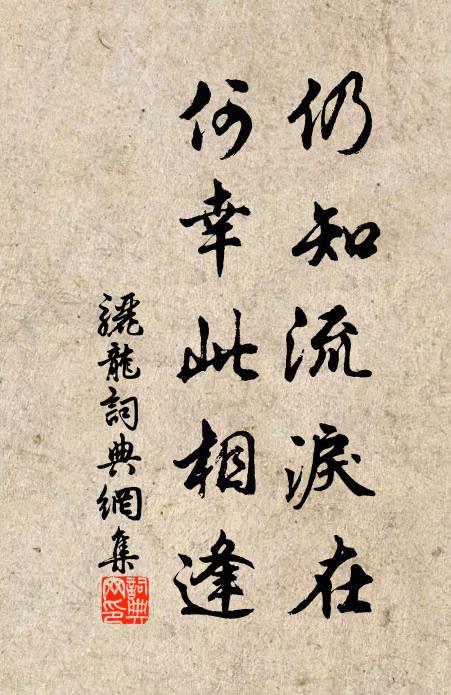 仍知流淚在
何幸此相逢
驪龍詞典網集
詞典網印